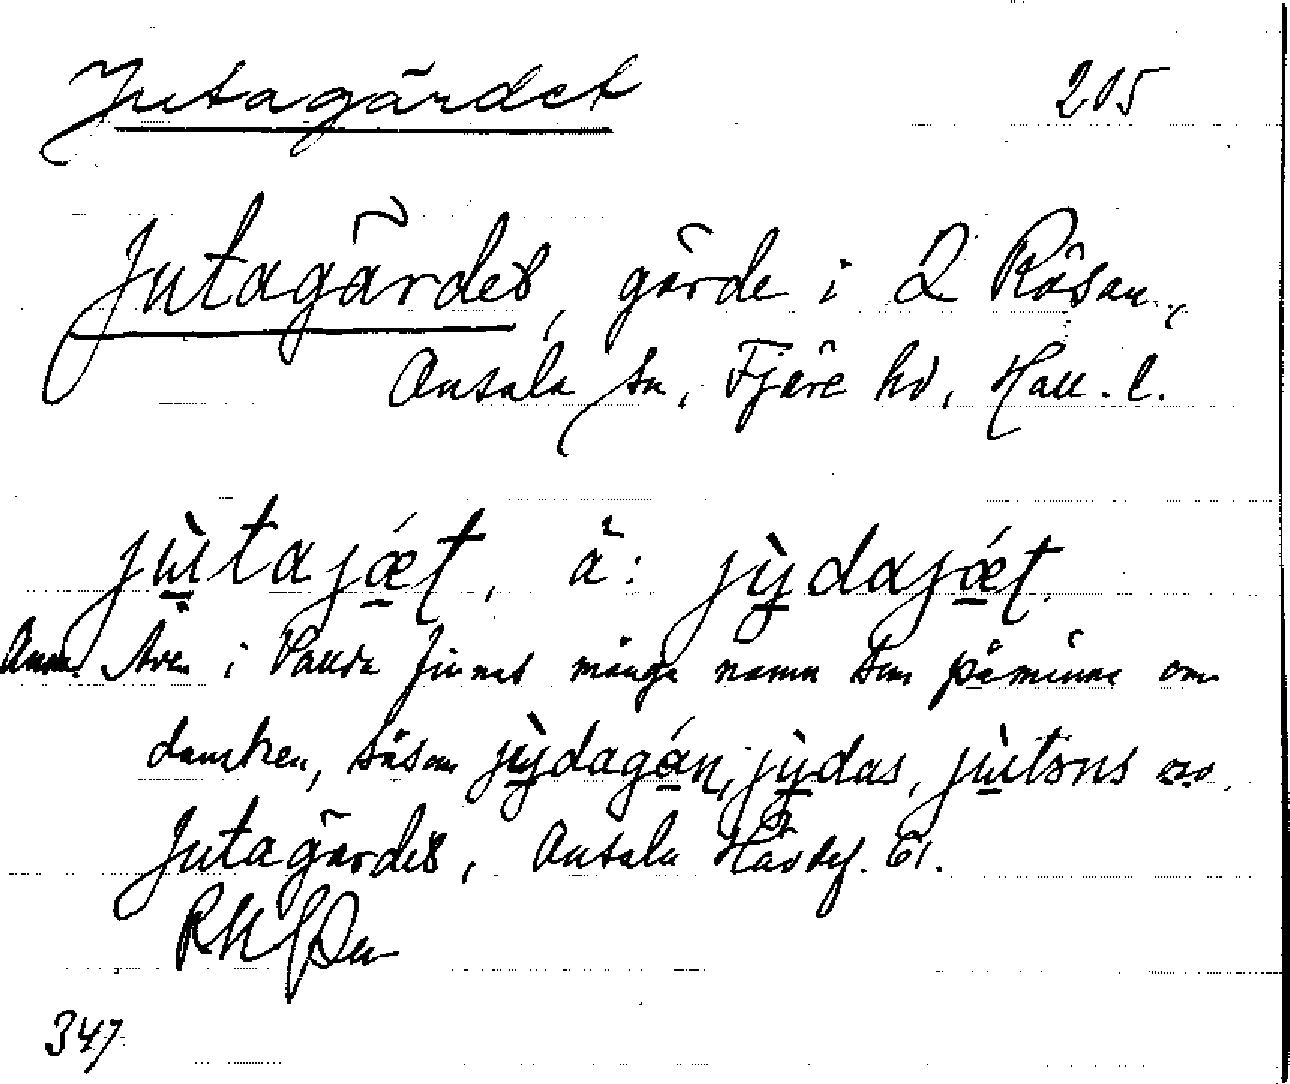 Jutagärdet 205
Jutagärdet, gärde i L Rösan.,
Onsala sn, Fjäre hd, Hall. l.
jùtajǽt, ä: jỳdajǽt.
Anm. Även i Valda finnes många namn som påminna om
dansken, såsom jỳdagán, jỳdas, jùtəns o s v.
Jutagärdet, Onsala Hävdef. 61.
347